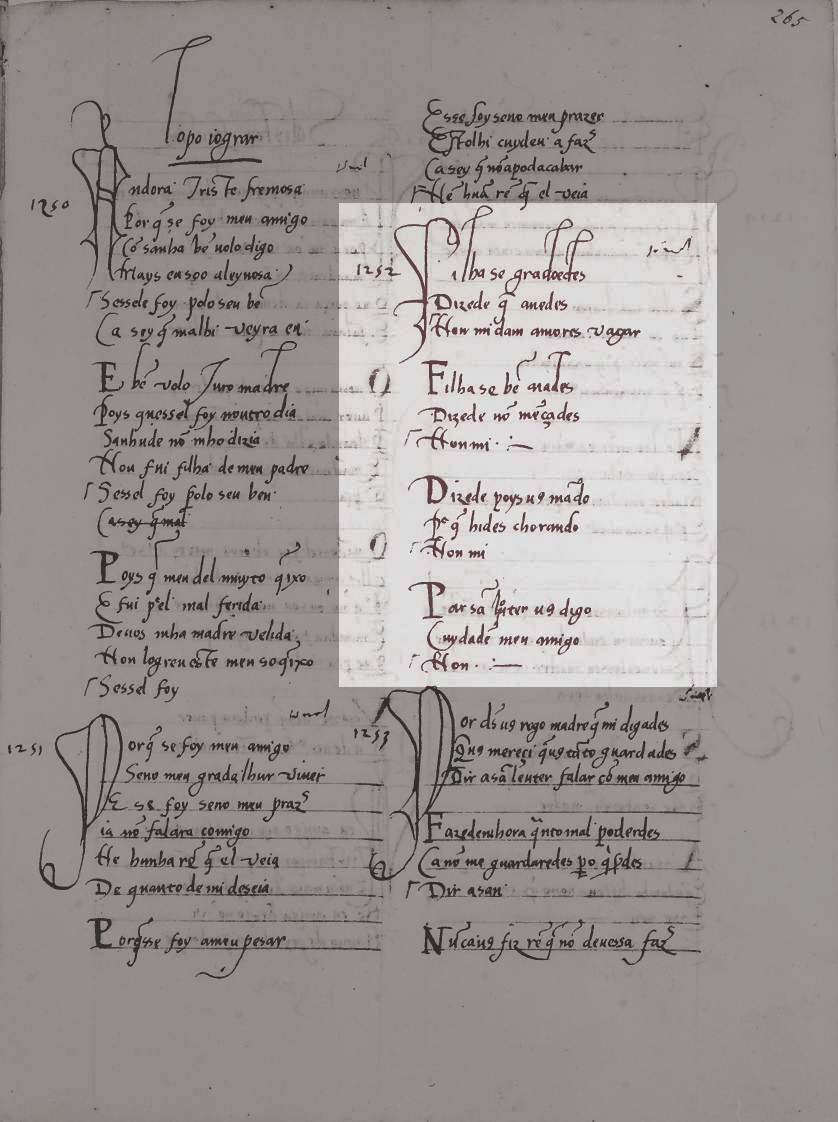 265
Lopo iograr
1250
Andora Triste fremosa
Porq̃ se foy meu amigo
Cõ sanha bẽ uolo digo
Mays en soo aleyuosa
Sessele foy polo seu bẽ
Ca sey q̃ malhi veyra en
E bẽ volo Juro madre
Poys quessel foy noutro dia
Sanhude nõ mho dizia
Non fui filha de meu padre
Sessel foy polo seu ben
Ca sey q̃ mal
Poys q̃ meu del muyto q̃ixo
E fui pᵉl mal ferida
De uos mha madre velida
Non logreu este meu soq̃ixo
Sessel foy
1251
Porq̃ se foy meu amigo
Seno meu grada lhur viuer
E se foy seno meu praz
ia nõ falara comigo
Ne hunha rẽ q̃ el veia
De quanto de mi deseia
Porq̃sse foy ameu pesar
Esse foy seno meu prazer
Estolhi cuydeu a faz
Ca sey q̃ nõ apod acabar
Ne huã rẽ q̃ el veia
1252
Filha se gradoedes
Dizede q̃ auedes
Non mi dam amores vagar
Filha se bẽ aiades
Dizede nõ mẽcades
Non mi
Dizede poys uꝯ mãdo
Pᵉ q̃ hides chorando
Non mi
Par sã leuter uꝯ digo
Cuydade meu amigo
Non
1253
Por ds̃ uꝯ rogo madre q̃ mi digades
Quꝯ mereçi q̃uꝯ tãto guardades
Dir a sã leuter falar cõ meu amigo
Fazedemhora q̃nto mal poderdes
Ca nõ me guardaredes
Dir a san
Nũcauꝯ fiz rẽ q̃ nõ deuessa faz